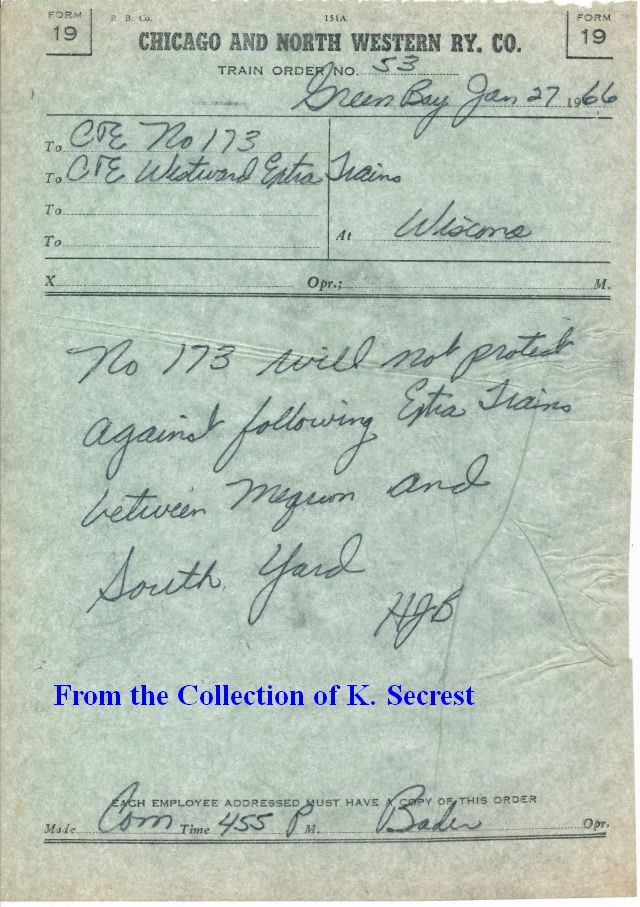 FORM 19
R. B. Co. 151A
FORM 19
CHICAGO AND NORTH WESTERN RY. CO.
TRAIN ORDER NO. 53
Green Bay Jan 27 1966
To C&E No 173
To C&E Westward Extra Trains
To
To
At Wiscona
X Opr.; M.
No 173 will not protect
against following Extra Trains
between Megwon and
South Yard
HJB
From the Collection of K. Secrest
EACH EMPLOYEE ADDRESSED MUST HAVE A COPY OF THIS ORDER
Made Com Time 455 P M. Bader Opr.